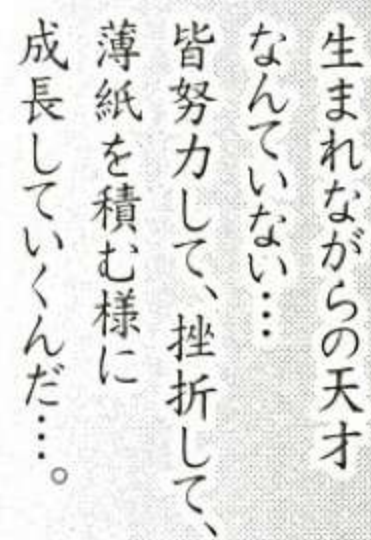 生まれながらの天才
なんていない…
皆努力して、挫折して、
薄紙を積む様に
成長していくんだ…。